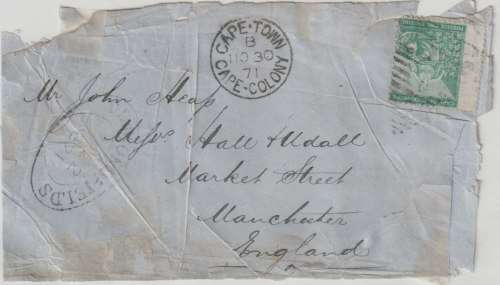 CAPE-TOWN
B
NO 30
71
CAPE-COLONY
Mr John Heap
Messrs Hall & Udall
Market Street
Manchester
England